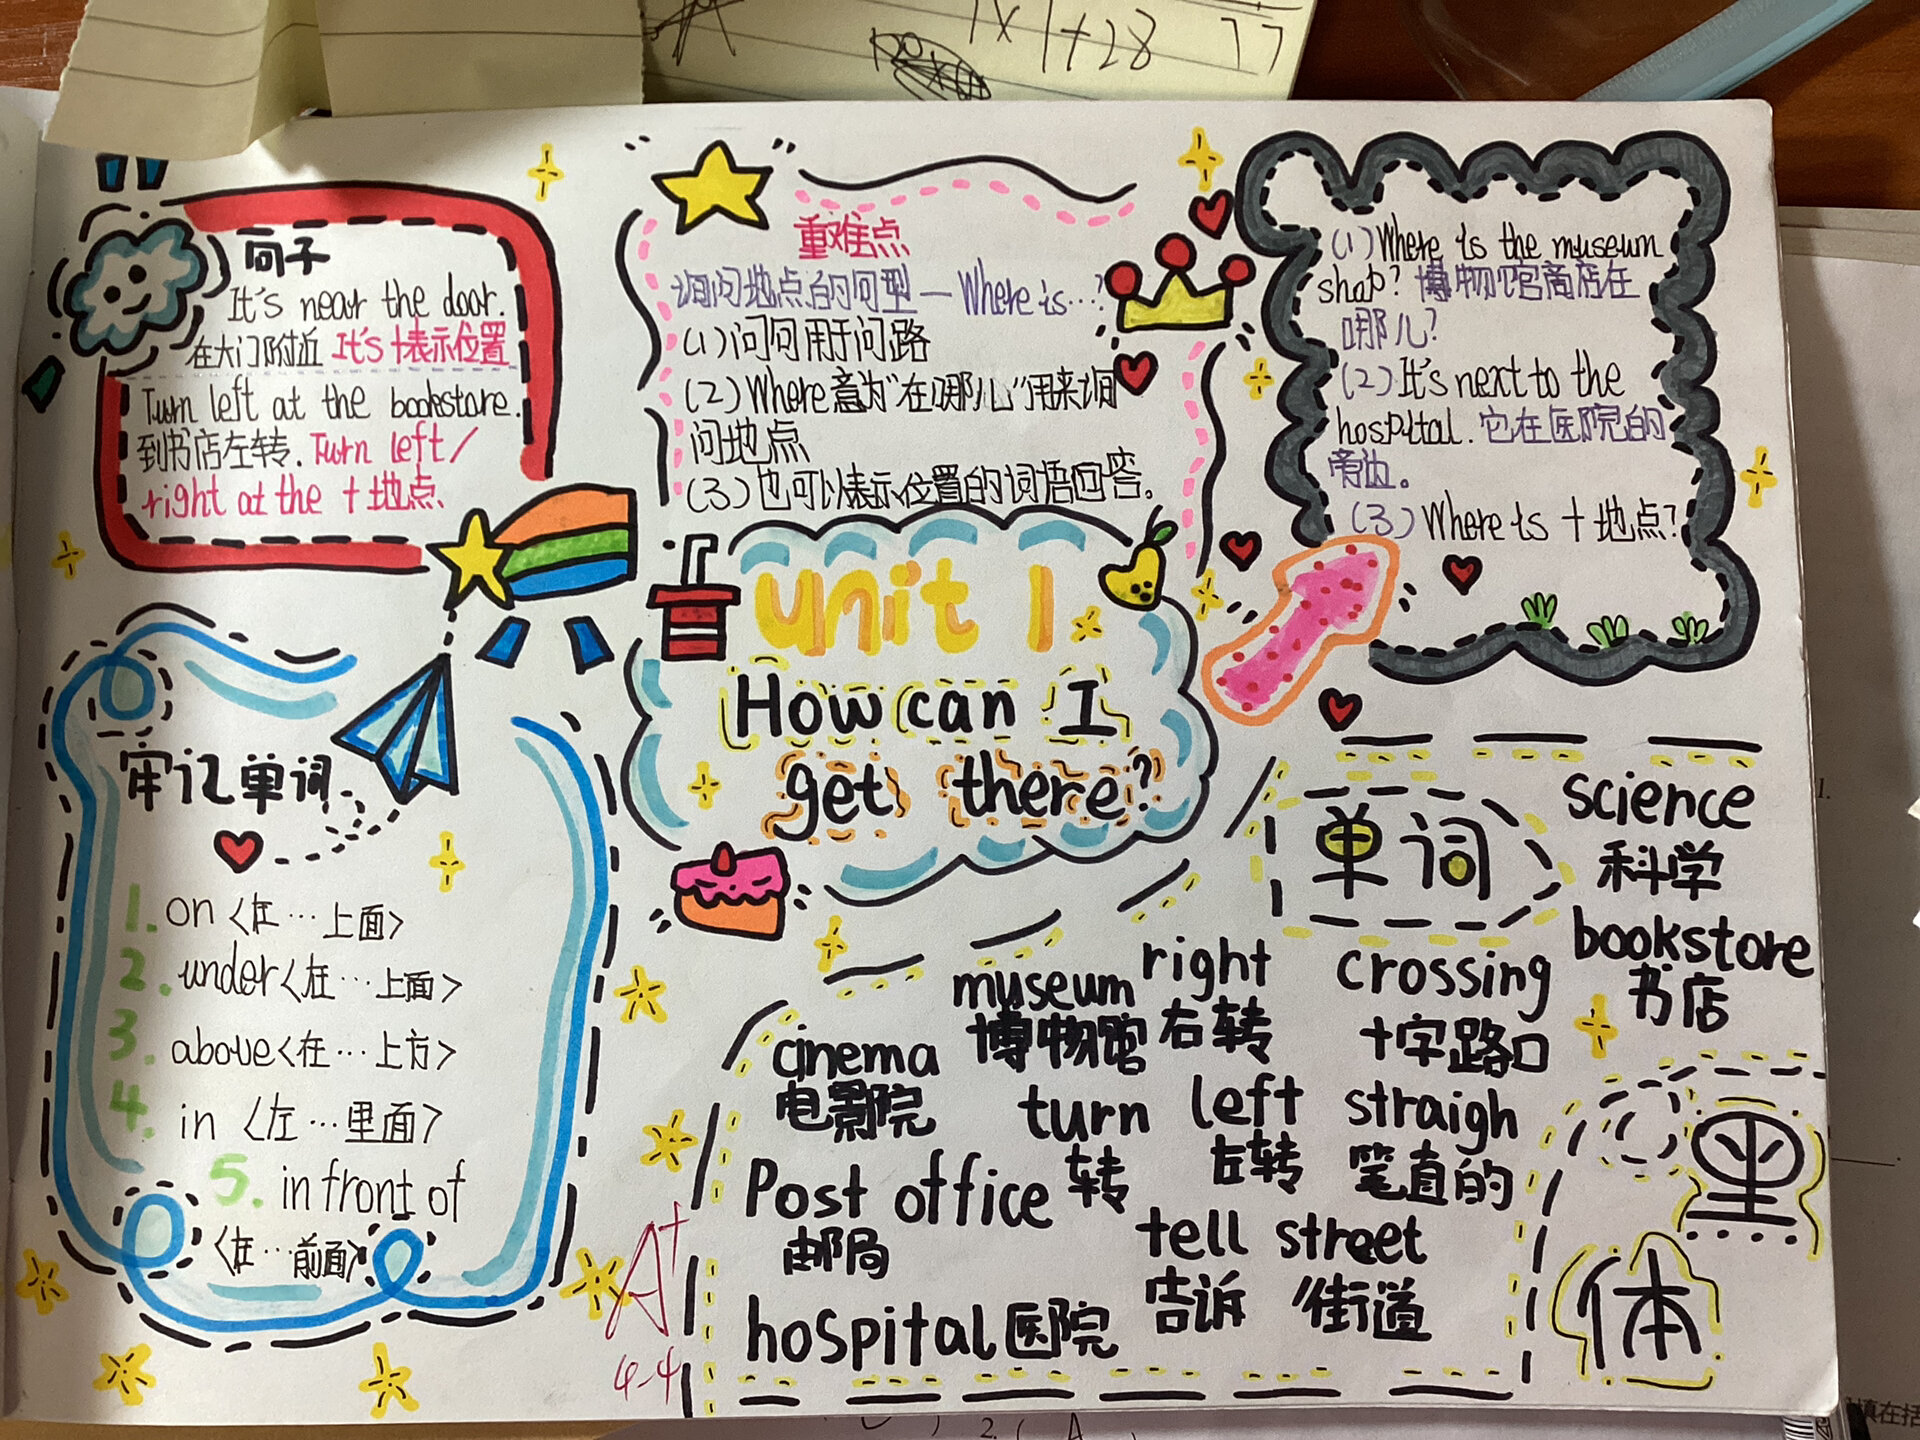 1×1+28 77
句子
It's near the door.
在大门附近 It's+表示位置
Turn left at the bookstore.
到书店左转. Turn left/
right at the + 地点.
重难点
询问地点的句型—Where is…?
(1)问句用于问路
(2)Where意为"在哪儿"用来询
问地点
(3)也可以表示位置的词语回答。
(1)Where is the museum
shop? 博物馆商店在
哪儿?
(2)It's next to the
hospital. 它在医院的
旁边。
(3)Where is + 地点?
unit 1
How can I
get there?
牢记单词
1. on <在…上面>
2. under <在…上面>
3. above <在…上方>
4. in <在…里面>
5. in front of
<在…前面>
单词
science
科学
bookstore
书店
museum
博物馆
right
右转
crossing
十字路口
cinema
电影院
turn
转
left
左转
straigh
笔直的
Post office
邮局
tell
告诉
street
街道
hospital 医院
A+
4-4
体
填在括
2. ( A